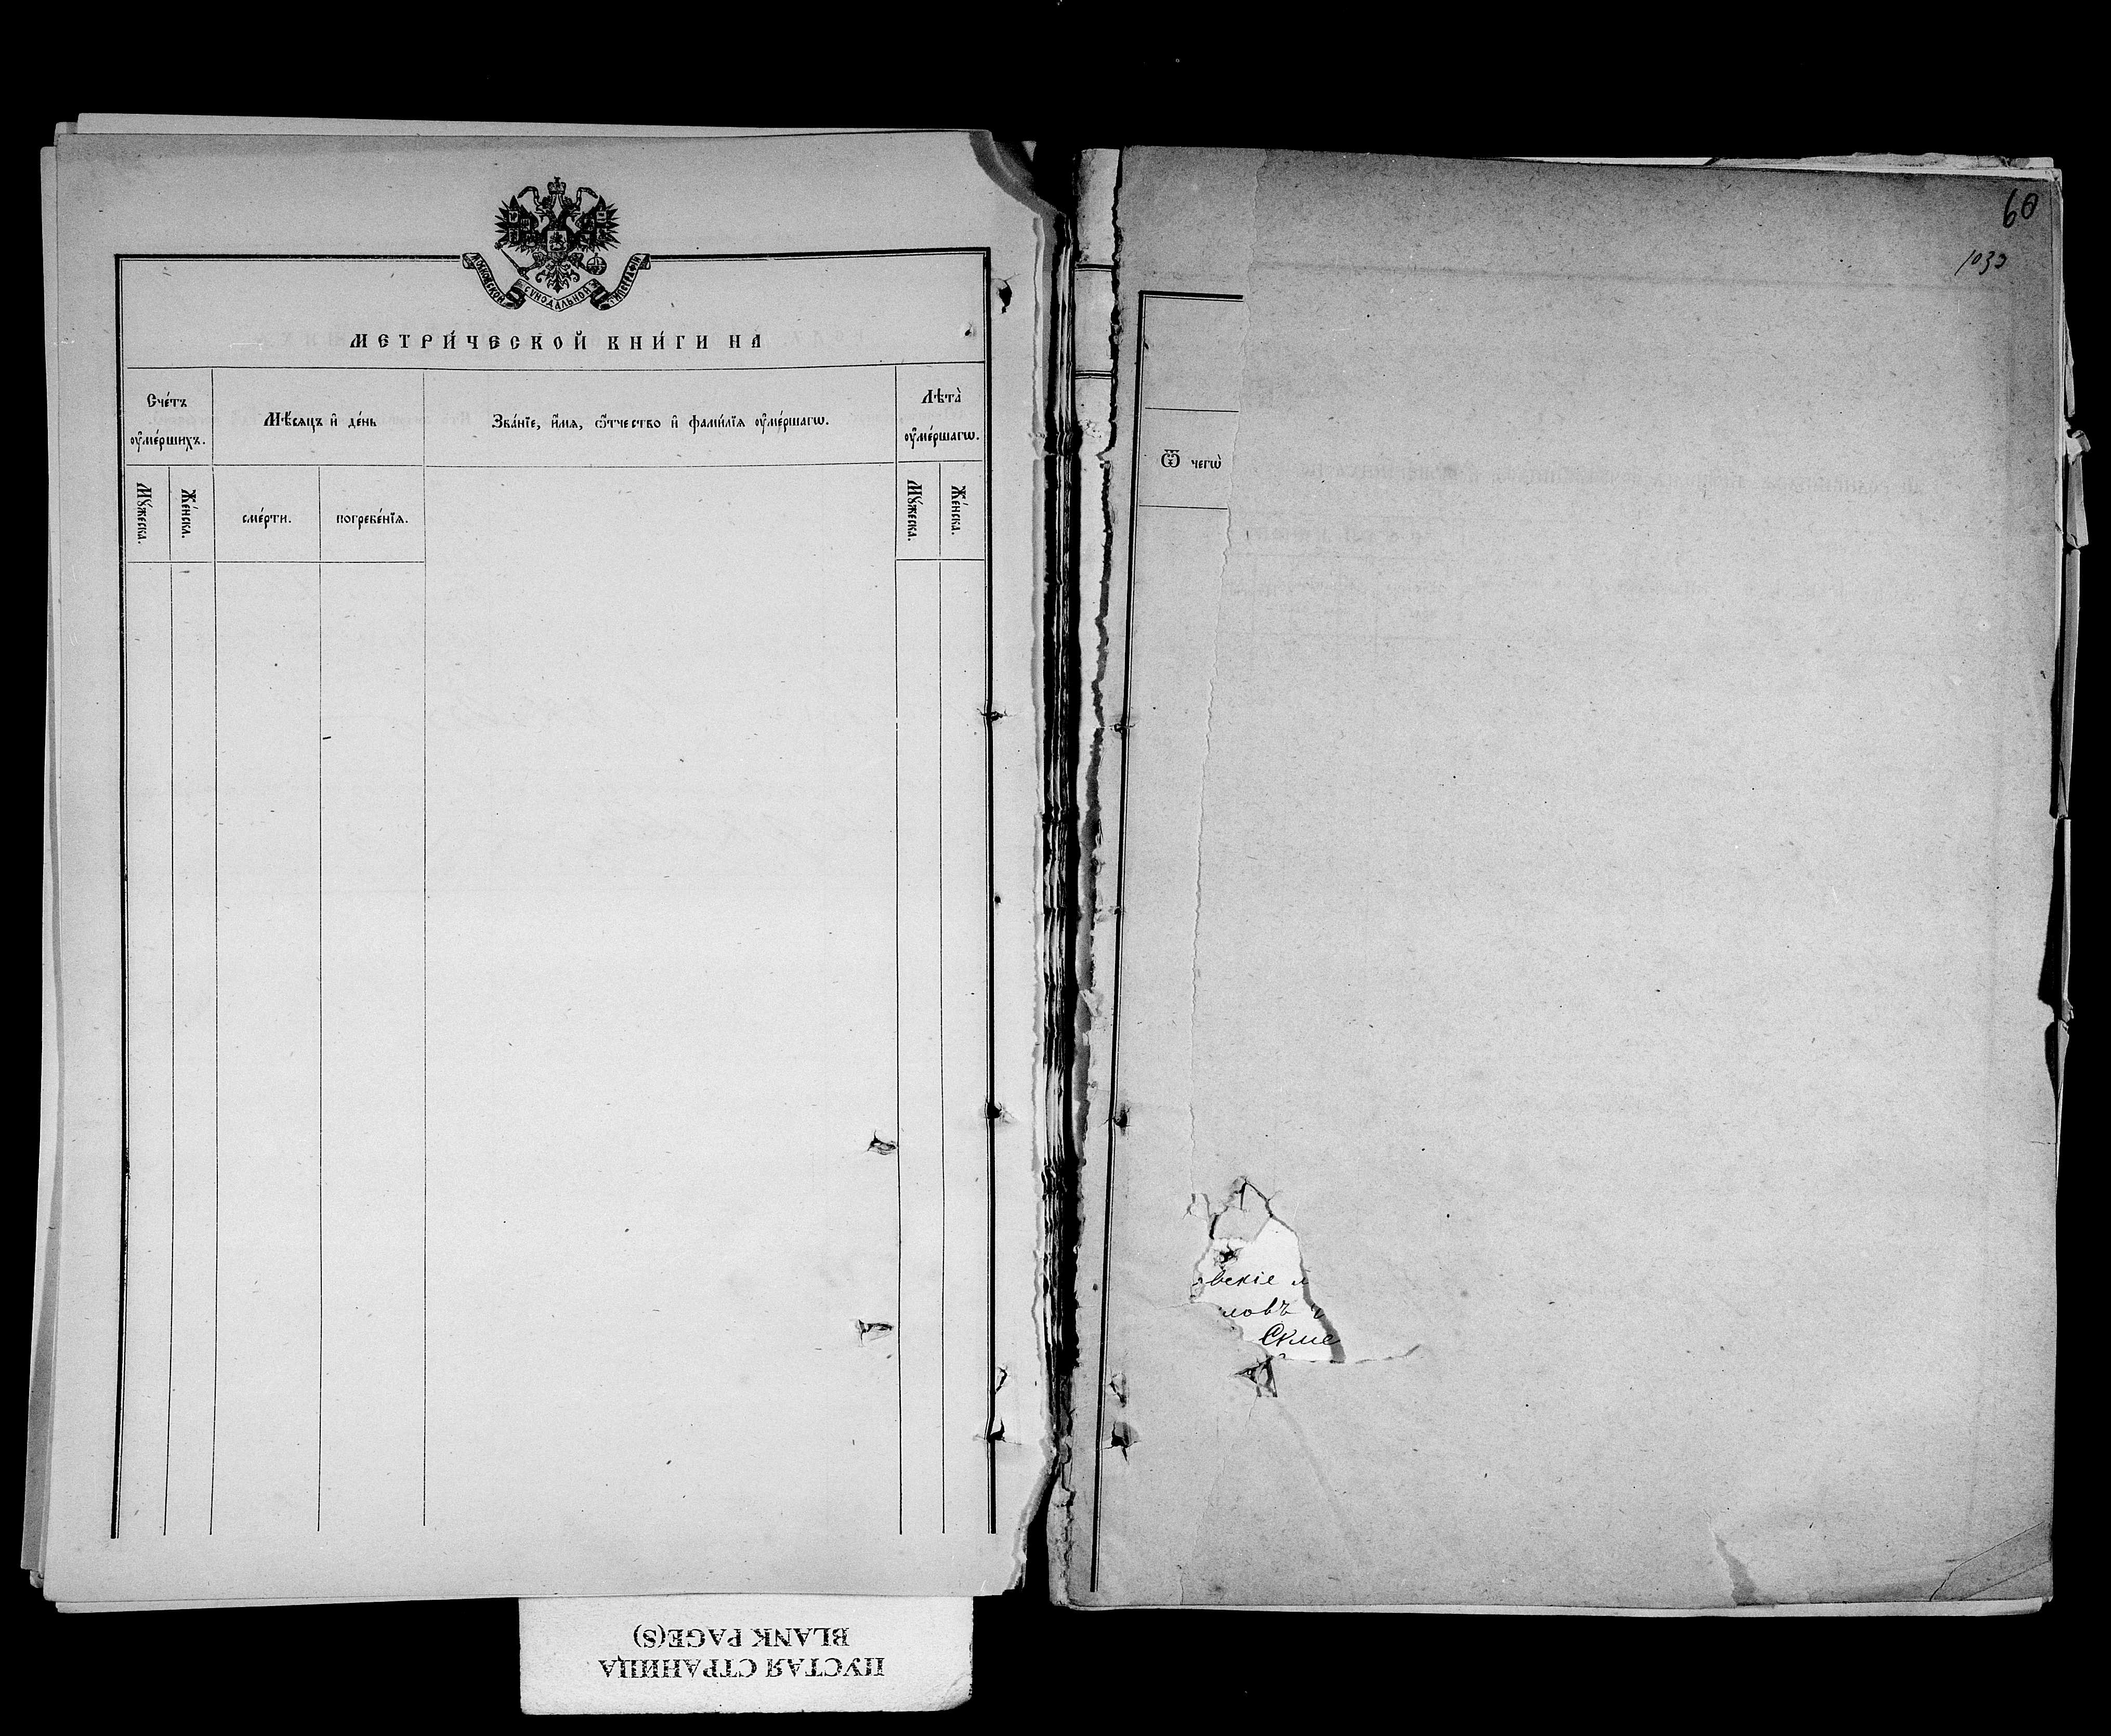 МОСКОВСКОЙ СѴНОДАЛЬНОЙ ТИПОГРАФІИ
МЕТРИ́ЧЕСКОЙ КНИ́ГИ НА
Сче́тъ ᲂу҆ме́ршихъ.
Мѣ́сяцъ и҆ де́нь
Зва́нїе, и҆́мѧ, ѻ҆́тчество и҆ фами́лїѧ ᲂу҆ме́ршагѡ.
Лѣта̀ ᲂу҆ме́ршагѡ.
Мꙋ́жеска.
Же́нска.
сме́рти.
погребе́нїѧ.
Мꙋ́жеска.
Же́нска.
60
Ѿ чегѡ̀
вскіе
ловъ
Скме
ПУСТАЯ СТРАНИЦА
BLANK PAGE(S)